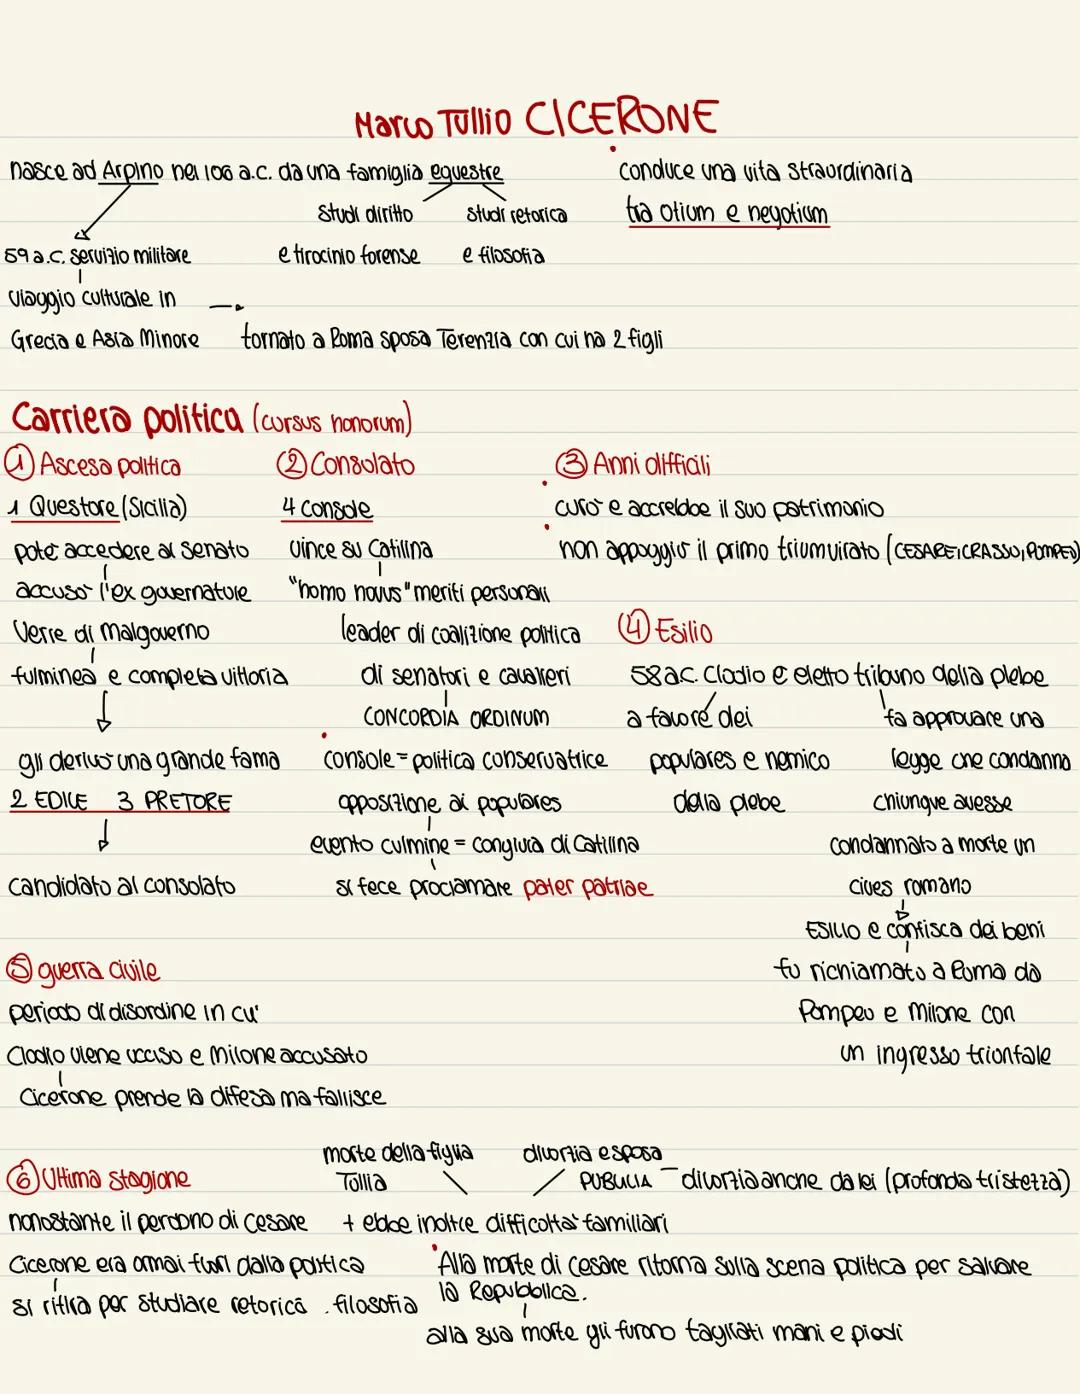 Marco Tullio CICERONE
nasce ad Arpino nel 106 a.c. da una famiglia equestre
studi diritto
e tirocinio forense
studi retorica
e filosofia
conduce una vita straordinaria
tra otium e negotium
59 a.c. servizio militare
viaggio culturale in
Grecia e Asia Minore
tornato a Roma sposa Terenzia con cui ha 2 figli
Carriera politica (cursus honorum)
① Ascesa politica
1 Questore (Sicilia)
potè accedere al senato
accusò l'ex governatore
Verre di malgoverno
fulminea e completa vittoria
gli derivò una grande fama
2 EDILE 3 PRETORE
candidato al consolato
② Consolato
4 console
vince su Catilina
"homo novus" meriti personali
leader di coalizione politica
di senatori e cavalieri
CONCORDIA ORDINUM
console = politica conservatrice
opposizione ai populares
evento culmine = congiura di Catilina
si fece proclamare pater patriae
③ Anni difficili
curò e accrebbe il suo patrimonio
non appoggiò il primo triumvirato (CESARE, CRASSO, POMPEO)
④ Esilio
58 a.c. Clodio è eletto tribuno della plebe
a favore dei
populares e nemico
della plebe
fa approvare una
legge che condanna
chiunque avesse
condannato a morte un
cives romano
ESILIO e confisca dei beni
fu richiamato a Roma da
Pompeo e Milone con
un ingresso trionfale
⑤ guerra civile
periodo di disordine in cui
Clodio viene ucciso e Milone accusato
Cicerone prende la difesa ma fallisce
⑥ Ultima stagione
nonostante il perdono di Cesare
Cicerone era ormai fuori dalla politica
si ritira per studiare retorica . filosofia
morte della figlia
Tullia
divorzia e sposa
PUBLILIA – divorzia anche da lei (profonda tristezza)
+ ebbe inoltre difficoltà familiari
Alla morte di Cesare ritorna sulla scena politica per salvare
la Repubblica.
alla sua morte gli furono tagliati mani e piedi